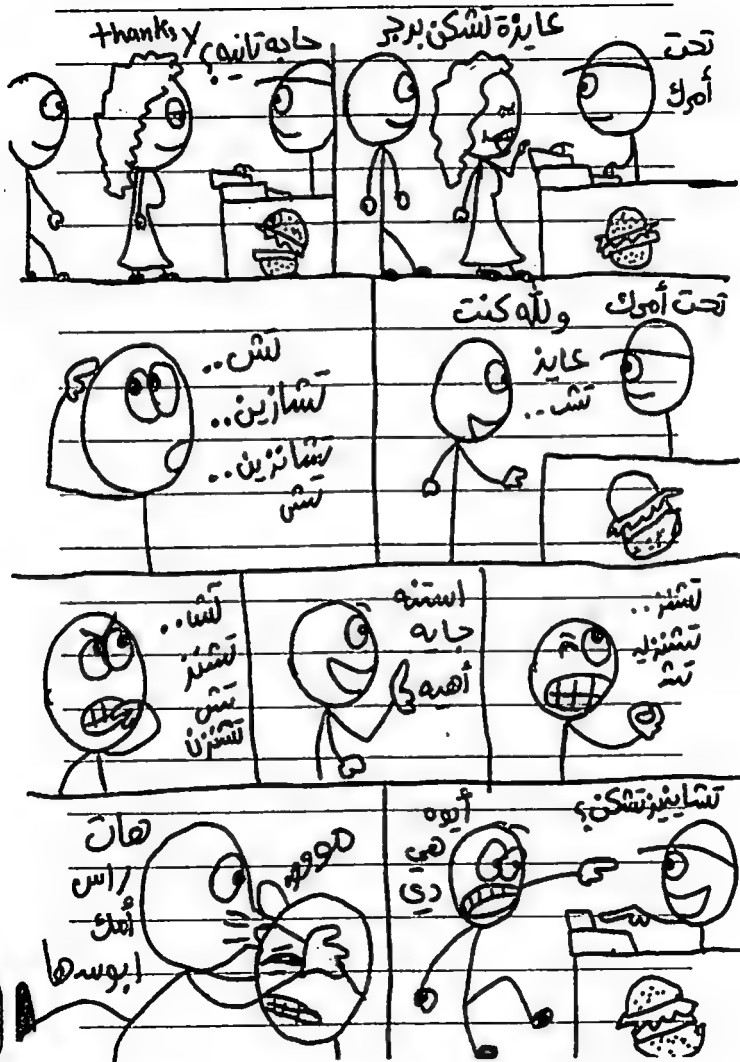 تحت
أمرك
عايزة تشكن برجر
حاجه تانيه؟
thanks y
تحت أمرك
ولله كنت
عايز
تش..
تش..
تشازين..
تشانزين..
تش
تشنز..
تشنزيه
تشز
استنه
جايه
أهيه
تشا..
تشنز
تش
تشنزن
تشاينيز تشكن؟
أيوه
هي
دي
مووووه
هات
راس
أمك
ابوسها